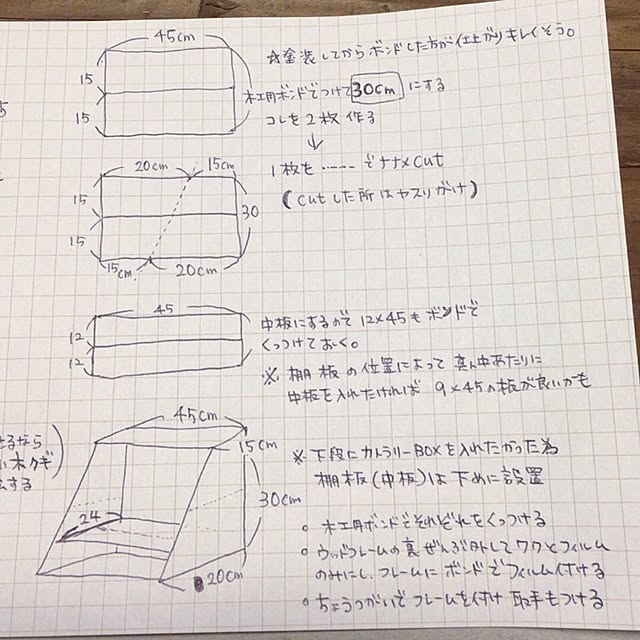 45cm
☆塗装してからボンドした方が仕上がりキレイそう。
15
15
木工用ボンドでつけて30cmにする
コレを2枚作る
↓
1枚を……でナナメcut
(cutした所はヤスリがけ)
20cm
15cm
15
15
30
15cm
20cm
45
12
12
中板にするので12×45もボンドで
くっつけておく。
※棚板の位置によって真ん中あたりに
中板を入れたければ9×45の板が良いかも
45cm
15cm
30cm
24
20cm
せるなら
い木クギ)
する
※下段にカトラリーBOXを入れたかった為
棚板(中板)は下めに設置
○木工用ボンドでそれぞれをくっつける
○ウッドフレームの裏ぜんぶ外してワクとフィルム
のみにし、フレームにボンドでフィルム付ける
○ちょうつがいでフレームを付け取手もつける